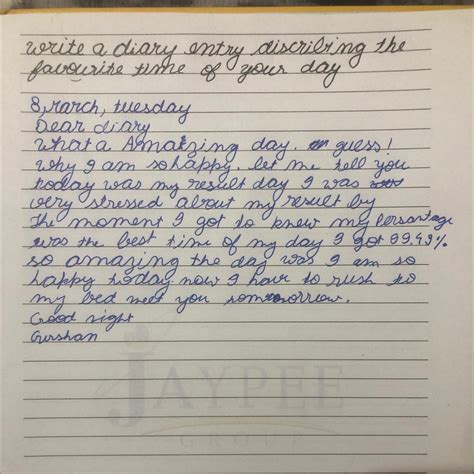 write a diary entry discribing the
favourite time of your day
8, march, tuesday
Dear diary
What a Amatzing day. guess!
Why I am so happy. let me tell you
today was my result day I was
very stressed about my result by
The moment I got to knew my persantage
was the best time of my day I got 99.49%
so amazing the day was I am so
happy today now I have to rush to
my bed meet you somtomorrow.
Good night
Gurshan
JAYPEE
GROUP